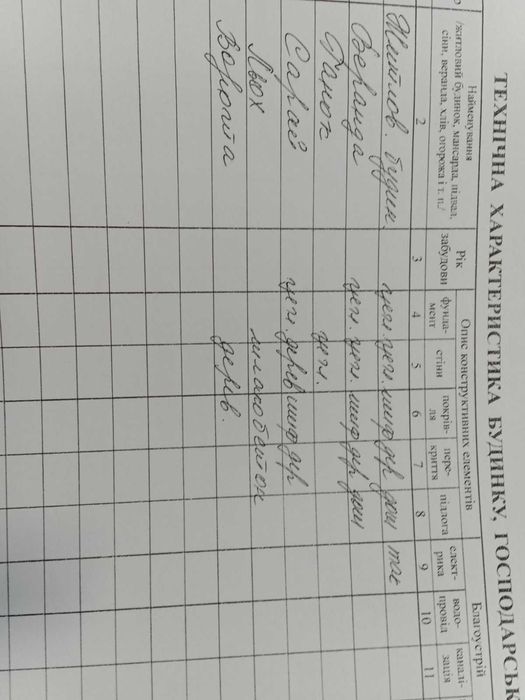 ТЕХНІЧНА ХАРАКТЕРИСТИКА БУДИНКУ, ГОСПОДАРСЬК
Найменування
/житловий будинок, мансарда, підвал,
сіни, веранда, хлів, огорожа і т. п./
Рік
забудови
Опис конструктивних елементів
фунда-
мент
стіни
покрів-
ля
пере-
криття
підлога
Благоустрій
елект-
рика
водо-
провід
каналі-
зація
2 3 4 5 6 7 8 9 10 11
Житлов. будин. цегл. цегл. шиф дер дощ так
Веранда цегл. цегл. шиф дер дощ
Ганок цегл.
Сарай цегл. дерев шиф дер
Льох шлакобетон
Ворота дерев.